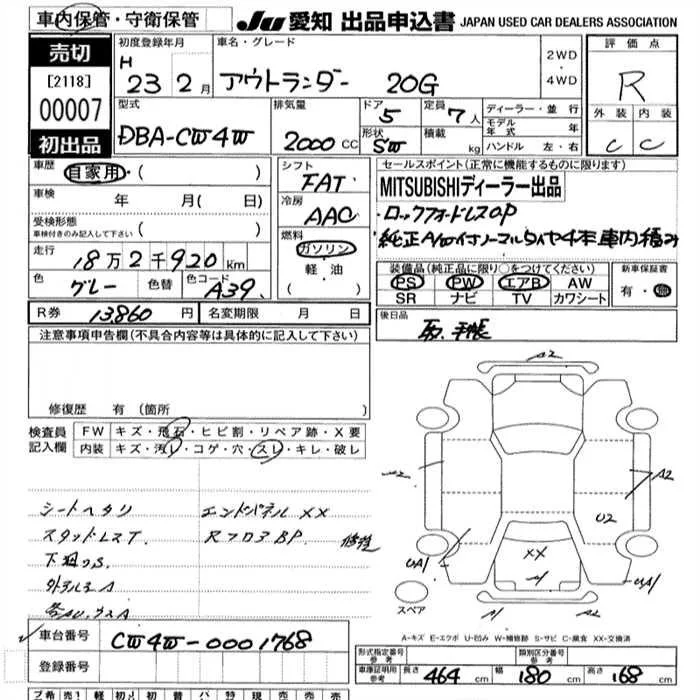 車内保管・守衛保管
JU 愛知 出品申込書 JAPAN USED CAR DEALERS ASSOCIATION
売切
[2118]
00007
初出品
初度登録年月
H 23 2月
車名・グレード
アウトランダー 20G
2WD
・
4WD
評価点
R
外装 内装
C C
型式
DBA-CW4W
排気量
2000 CC
ドア
5
形状
SW
定員
7人
積載
kg
ディーラー・並行
モデル年式 年
ハンドル 左・右
車歴 自家用・( )
車検 年 月( 日)
受検形態
車検付きのみ記入して下さい ( )
走行 18万2千920Km
色 グレー 色替 色コード A39
シフト
FAT
冷房
AAC
燃料
ガソリン
・
軽・油
( )
セールスポイント(正常に機能するものに限ります)
MITSUBISHIディーラー出品
・ロックフォードレスOP
純正A/Wイナノーマルタイヤ4本車内積み
装備品(純正品に限り○をつけてください)
PS PW エアB AW
SR ナビ TV カワシート
新車保証書
有・無
R券 13,860円
名変期限 月 日
後日品
取、手帳
注意事項申告欄(不具合内容等は具体的に記入して下さい)
修復歴 有(箇所 )
検査員記入欄
FW キズ・飛石・ヒビ割・リペア跡・X要
内装 キズ・汚レ・コゲ・穴・スレ・キレ・破レ
シートヘタリ
スタッドレスT.
下廻りS
外アルミA
エンドパネルXX
RフロアBP 修復
A2
A2
A2
U2
XX
UA1
スペア
A-キズ E-エクボ U-凹み W-補修跡 S-サビ C-腐食 XX-交換済
車台番号 CW4W-0001768
登録番号
形式指定番号
参考
類別区分番号
参考
車庫証明用
参考
長さ 464cm 幅 180cm 高さ 168cm